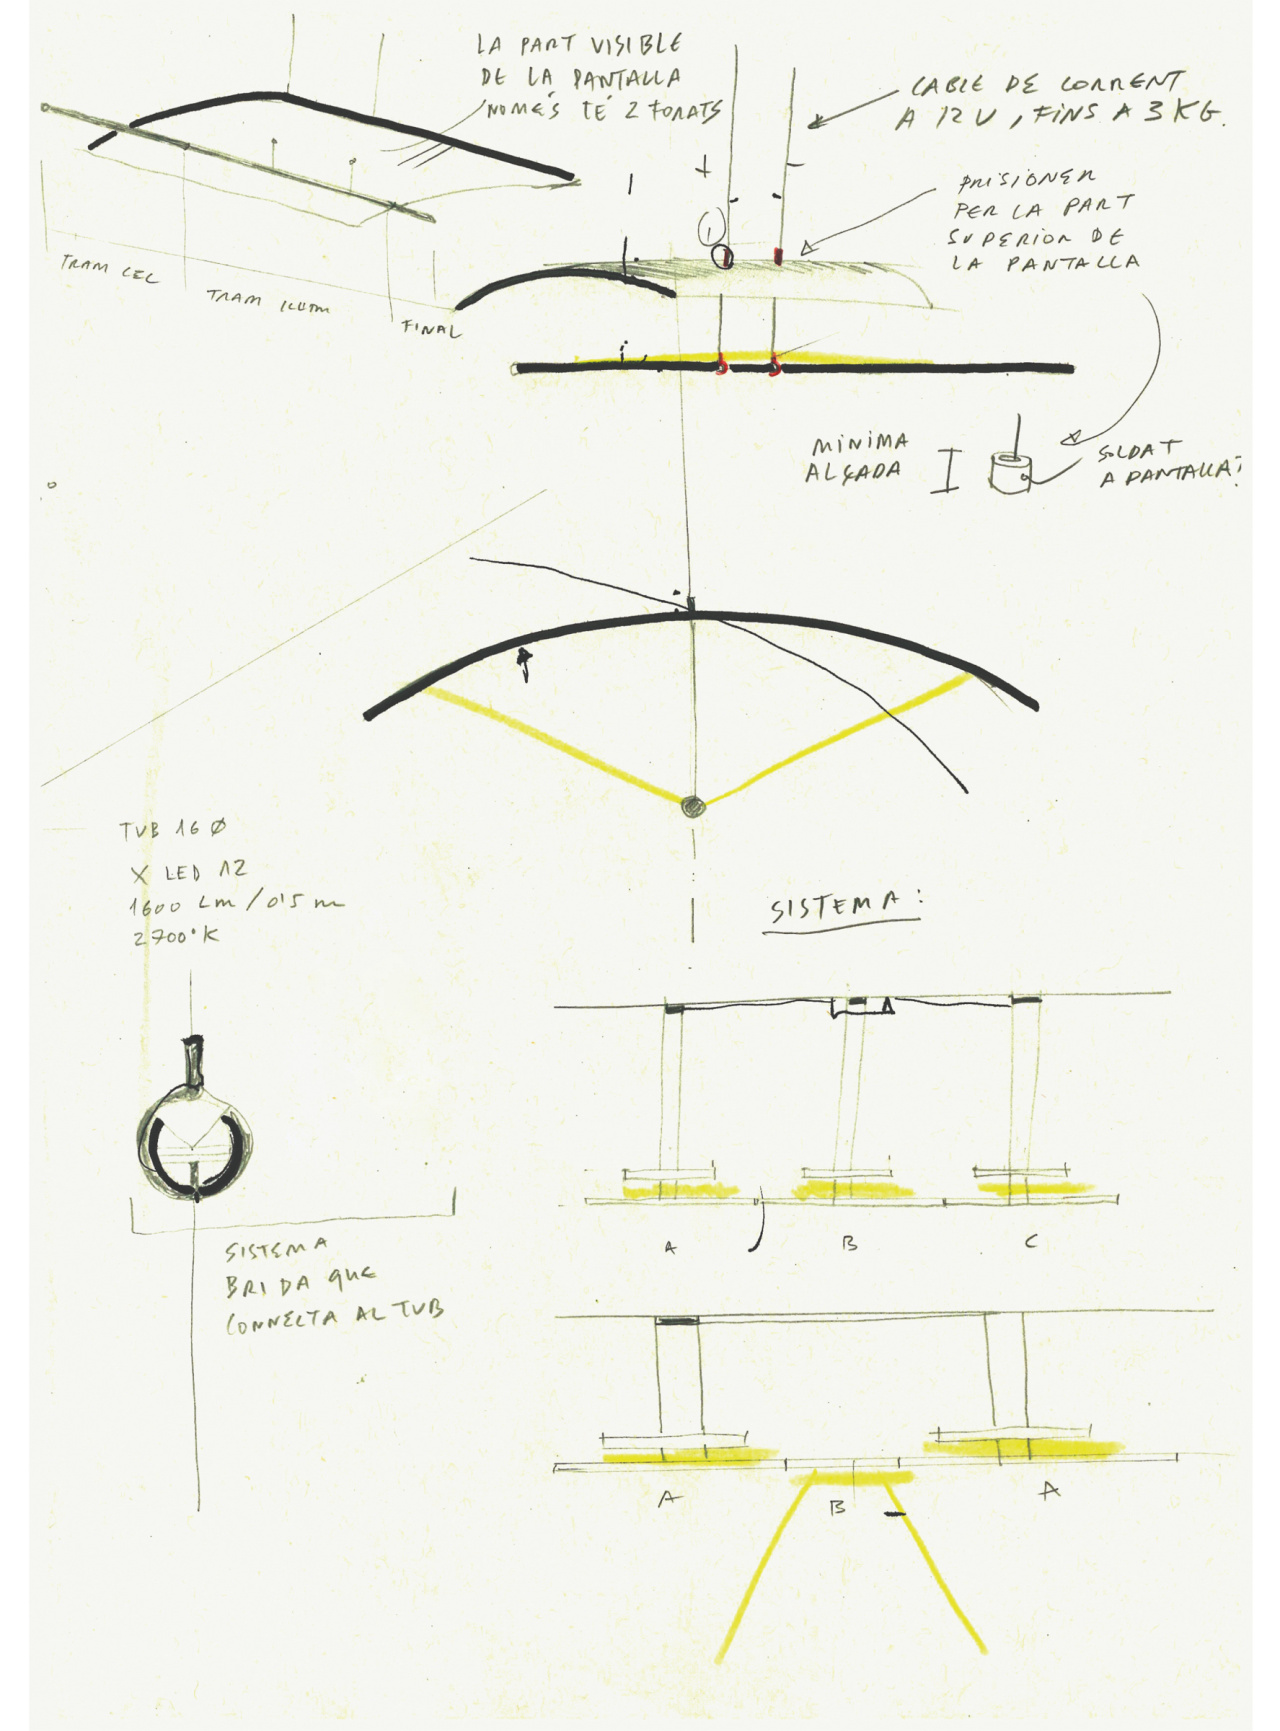 LA PART VISIBLE
DE LA PANTALLA
NOMÉS TÉ 2 FORATS
CABLE DE CORRENT
A 12 V, FINS A 3 KG.
PRISIONER
PER LA PART
SUPERIOR DE
LA PANTALLA
TRAM CEC
TRAM ILLUM
FINAL
1
MINIMA
ALÇADA
SOLDAT
A PANTALLA?
TUB 16 Ø
X LED 12
1600 Lm/0'5 m
2700°K
SISTEMA:
A
B
C
SISTEMA
BRIDA QUE
CONNECTA AL TUB
A
B
A